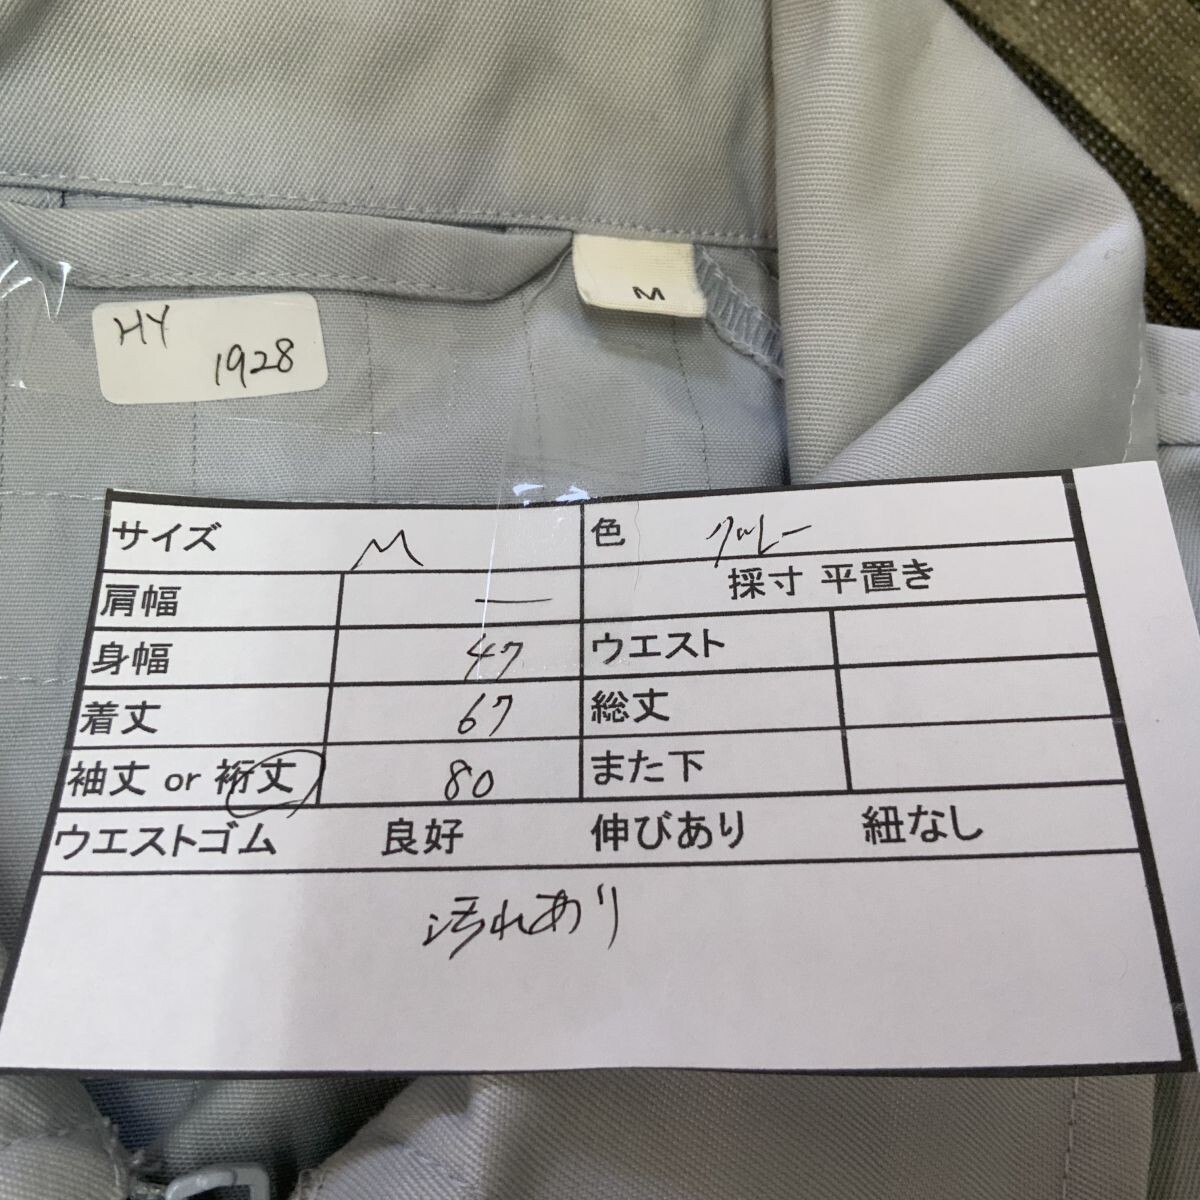 M
HY
1928
サイズ M 色 グレー
肩幅 ー 採寸 平置き
身幅 47 ウエスト
着丈 67 総丈
袖丈 or 裄丈 80 また下
ウエストゴム 良好 伸びあり 紐なし
汚れあり